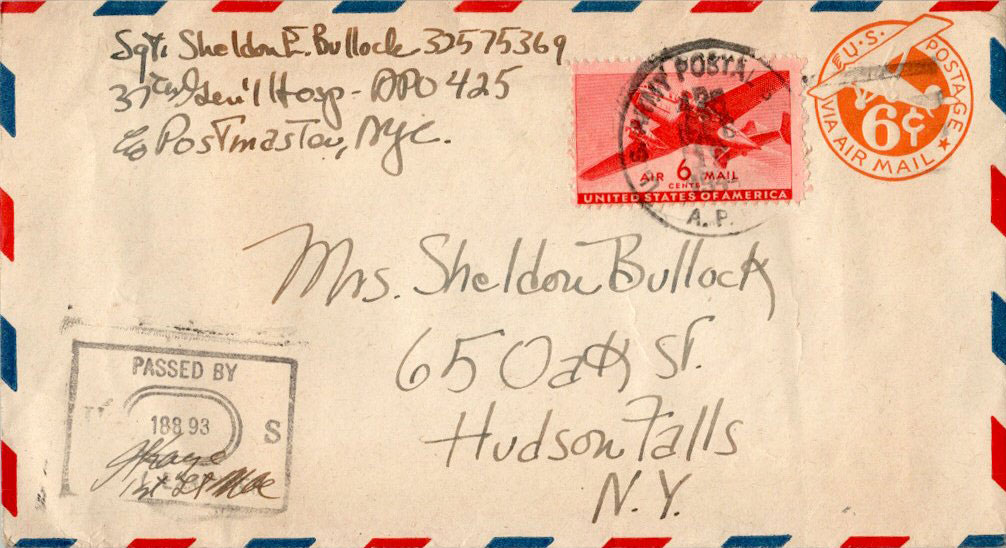 Sgt. Sheldon E. Bullock 32575369
37th Gen'l Hosp - APO 425
c/o Postmaster, NYC.
U.S. POSTAGE
6¢
VIA AIR MAIL
U.S. ARMY POSTAL
A.P.
AIR 6 MAIL
CENTS
UNITED STATES OF AMERICA
Mrs. Sheldon Bullock
65 Oak St.
Hudson Falls
N.Y.
PASSED BY
18893
S
1st Lt